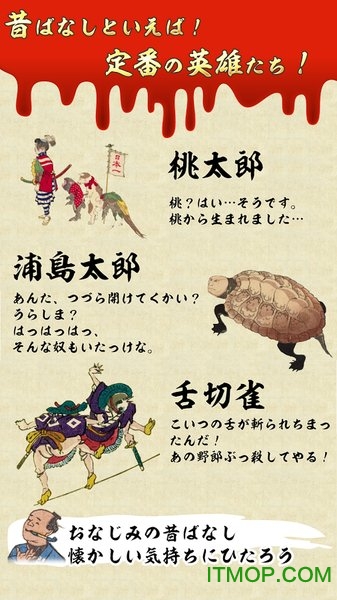 昔ばなしといえば！
定番の英雄たち！
日本一
桃太郎
桃？はい…そうです。
桃から生まれました…
浦島太郎
あんた、つづら開けてくかい？
うらしま？
はっはっはっ、
そんな奴もいたっけな。
舌切雀
こいつの舌が斬られちまっ
たんだ！
あの野郎ぶっ殺してやる！
おなじみの昔ばなし
懐かしい気持ちにひたろう
ITMOP.COM